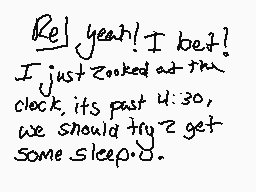 Re] yeah! I bet!
I just Looked at the
clock, its past 4:30,
we should try 2 get
some sleep.U.